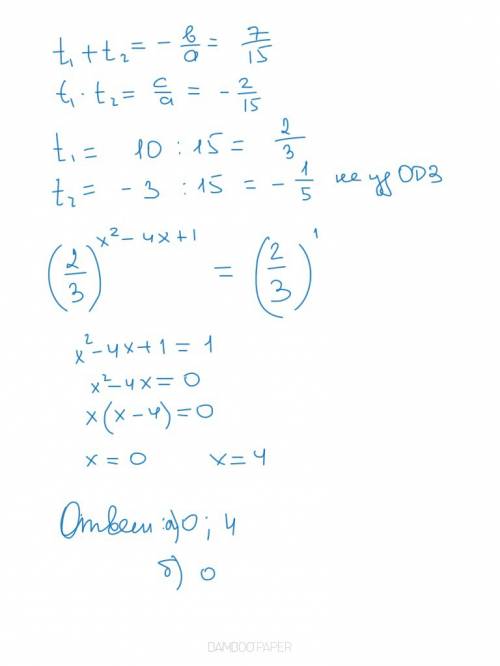 t₁ + t₂ = - b/a = 7/15
t₁ · t₂ = c/a = - 2/15
t₁ = 10 : 15 = 2/3
t₂ = - 3 : 15 = - 1/5 не уд ОДЗ
(2/3)^(x² - 4x + 1) = (2/3)^1
x² - 4x + 1 = 1
x² - 4x = 0
x(x - 4) = 0
x = 0 x = 4
Ответ: а) 0; 4
б) 0
BAMBOO PAPER